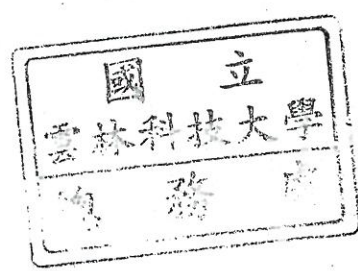 國 立
雲林科技大學
務